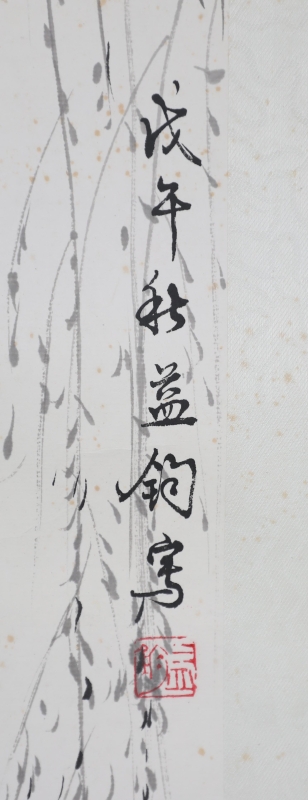 戊午秋益鈞寫